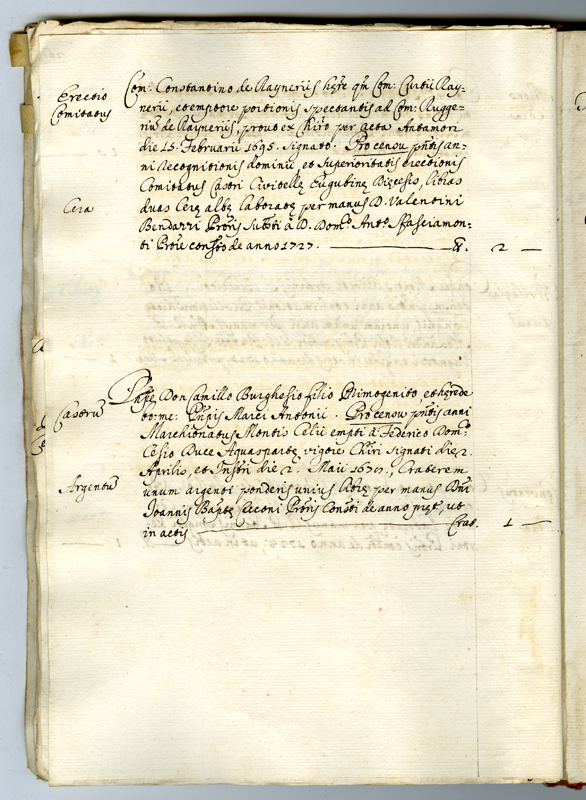 Erectio
Comitatus
Com: Constantino de Rayneriis hęre qm̃ Com: Curtii Ray=
nerii, et emptore portionis spectantis ad Com: Rugge=
riũ de Rayneriis, prout ex Chiro per acta Antamori
die 15. Februarii 1695. signato. Pro censu pñtis an=
ni recognitionis dominii et superioritatis erectionis
Comitatus Castri Civitellę Eugubinę Dięcesis, libras
Cera
duas Cerę albę laboratę per manus D. Valentini
Bendazzi Pròris
à D. Domco Anto Sfasciamon=
ti Pròre de anno 1727. 2
Castrũ
Papę Don Camillo Burghesio filio Primogenito et hęrede
bo: me: Pñpis Marci Antonii. Pro censu pñtis anni
Marchionatus Montis Celii empti à Federico Domco
Cesio Duce Aquaspartę vigore Chiri signati die 2.
Aprilis, et Instri die 2. Maii Craterem
Argentũ
unum argenti ponderis unius librę per manus Dñi
Joannis Baptę Cecconi Pròris de anno ut
in actis Crat. 1